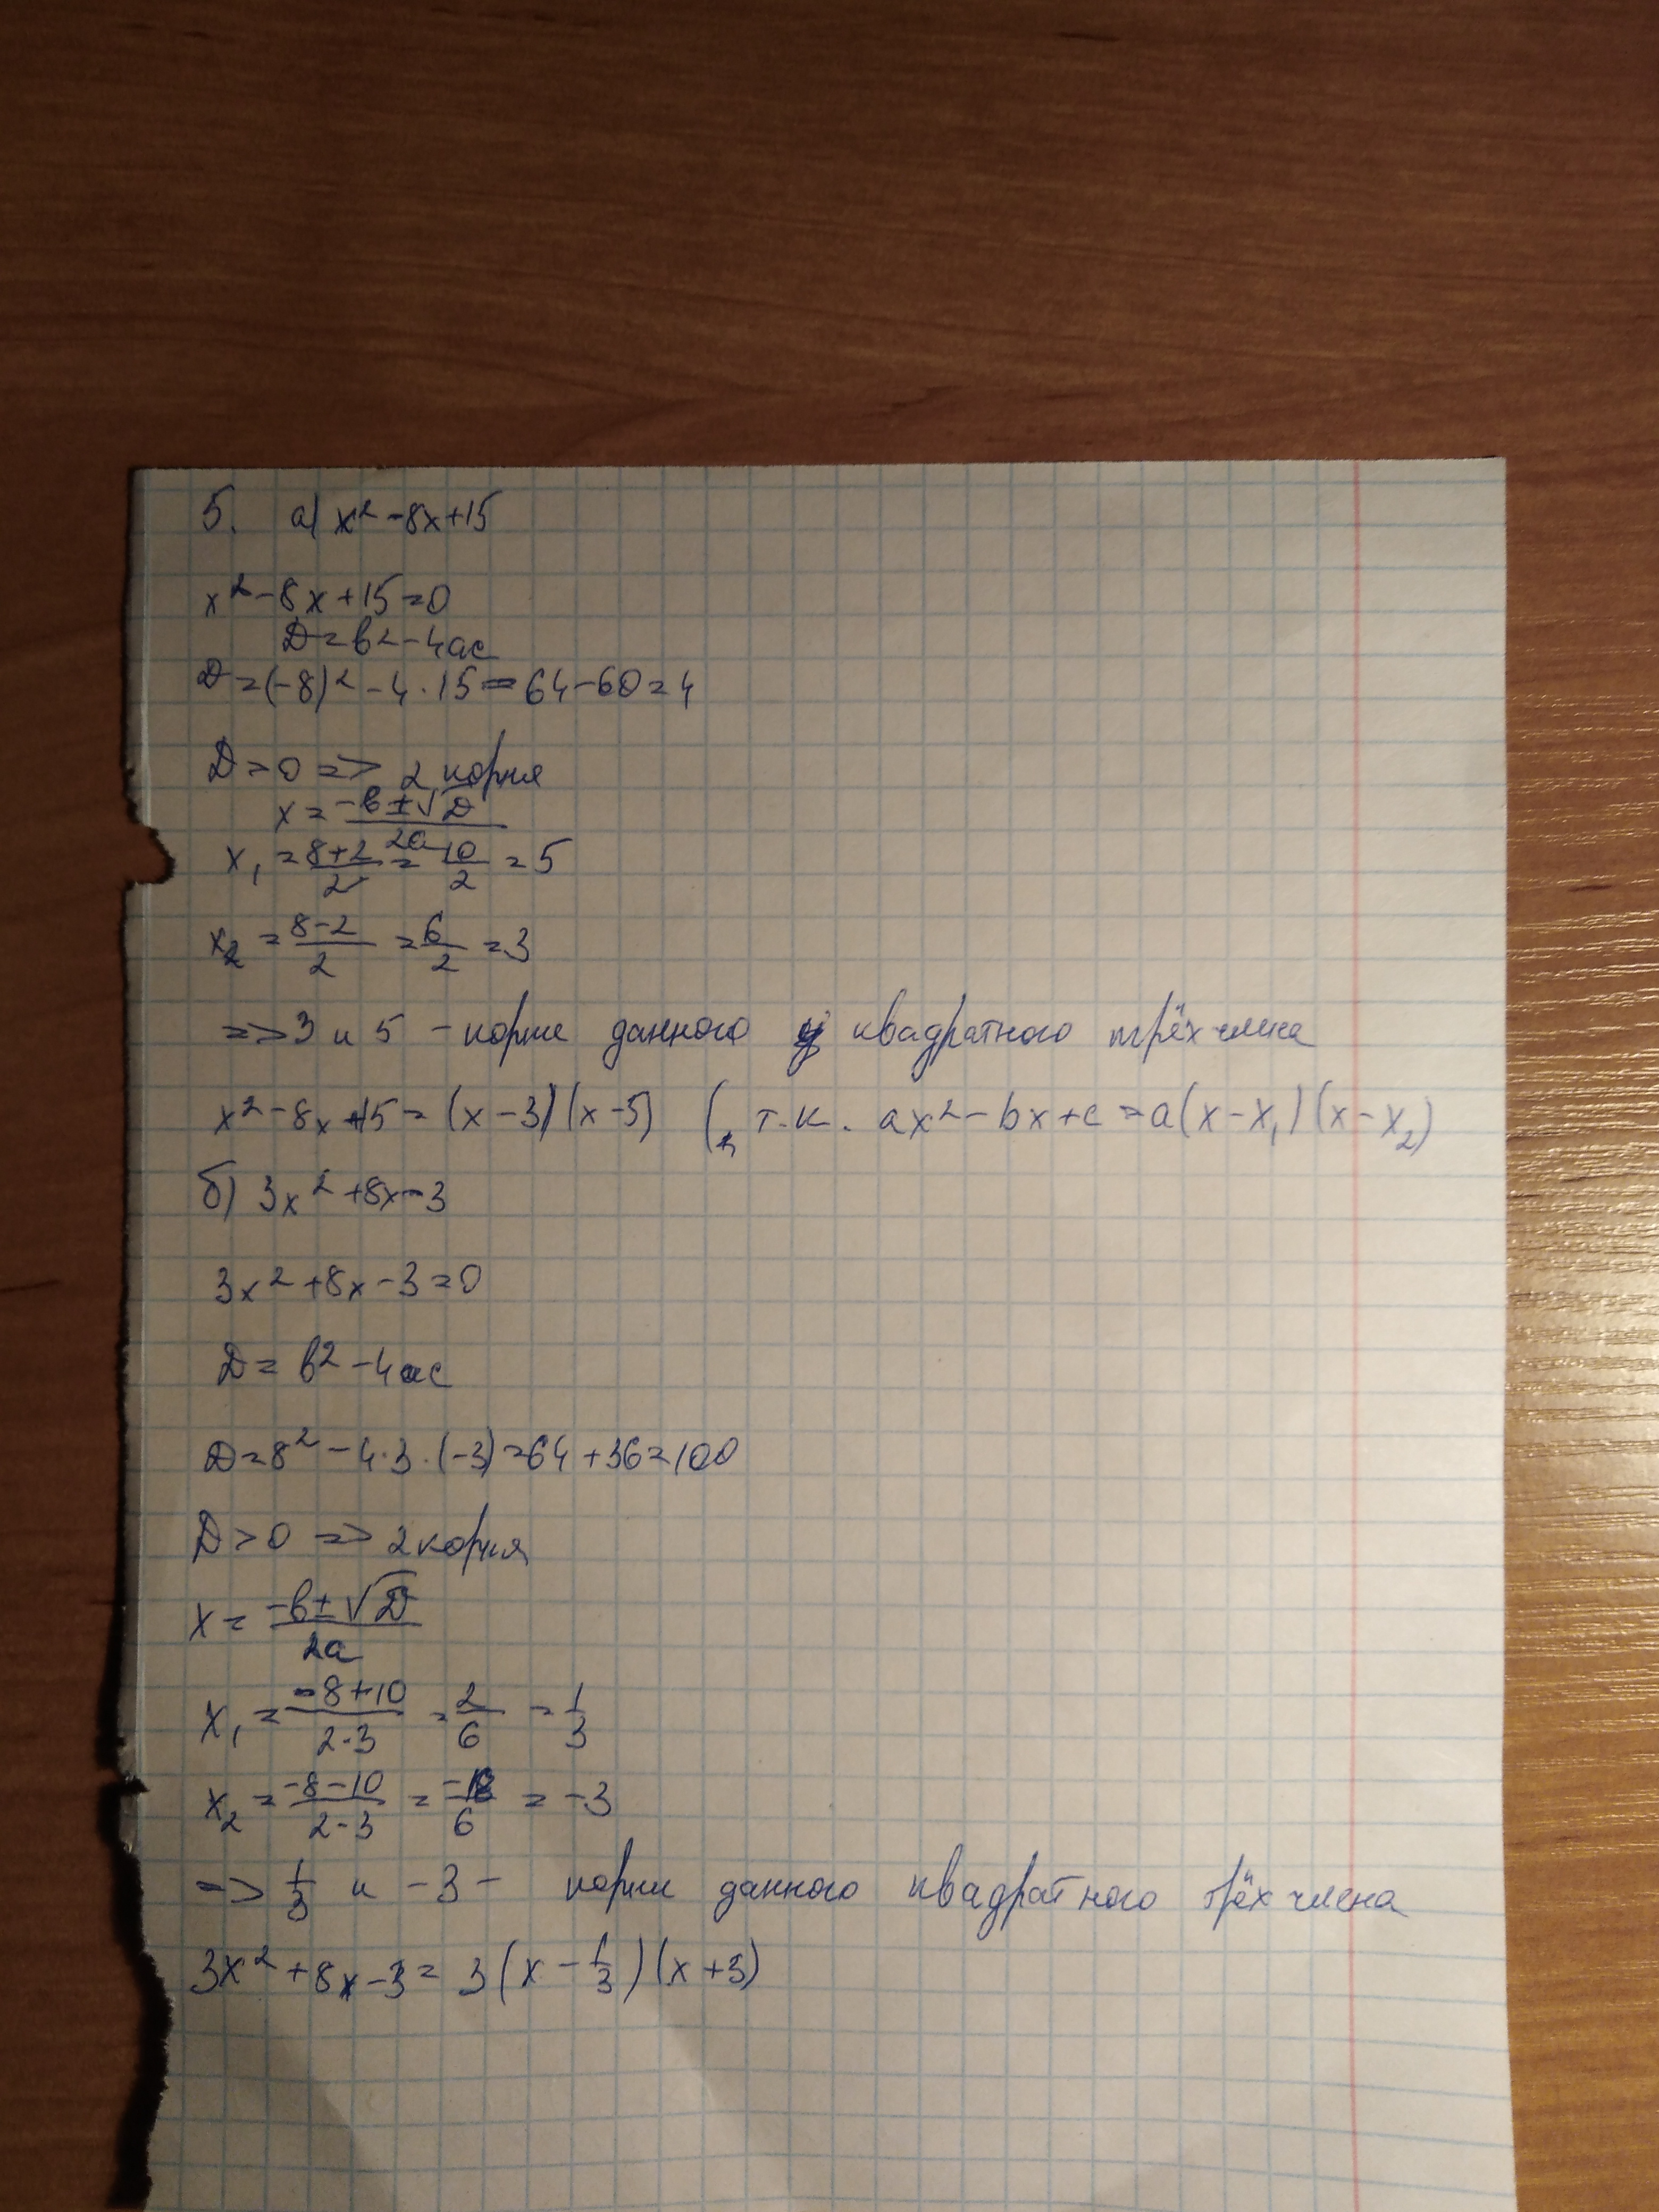 5. а) x² - 8x + 15
x² - 8x + 15 = 0
D = b² - 4ac
D = (-8)² - 4 · 15 = 64 - 60 = 4
D > 0 => 2 корня
x = (-b ± √D)/2a
x₁ = (8+2)/2 = 10/2 = 5
x₂ = (8-2)/2 = 6/2 = 3
=> 3 и 5 - корни данного квадратного трёхчлена
x² - 8x + 15 = (x - 3)(x - 5) ( т.к. ax² - bx + c = a(x - x₁)(x - x₂)
б) 3x² + 8x - 3
3x² + 8x - 3 = 0
D = b² - 4ac
D = 8² - 4 · 3 · (-3) = 64 + 36 = 100
D > 0 => 2 корня
x = (-b ± √D)/2a
x₁ = (-8+10)/(2·3) = 2/6 = 1/3
x₂ = (-8-10)/(2·3) = -18/6 = -3
=> 1/3 и -3 - корни данного квадратного трёхчлена
3x² + 8x - 3 = 3(x - 1/3)(x + 3)